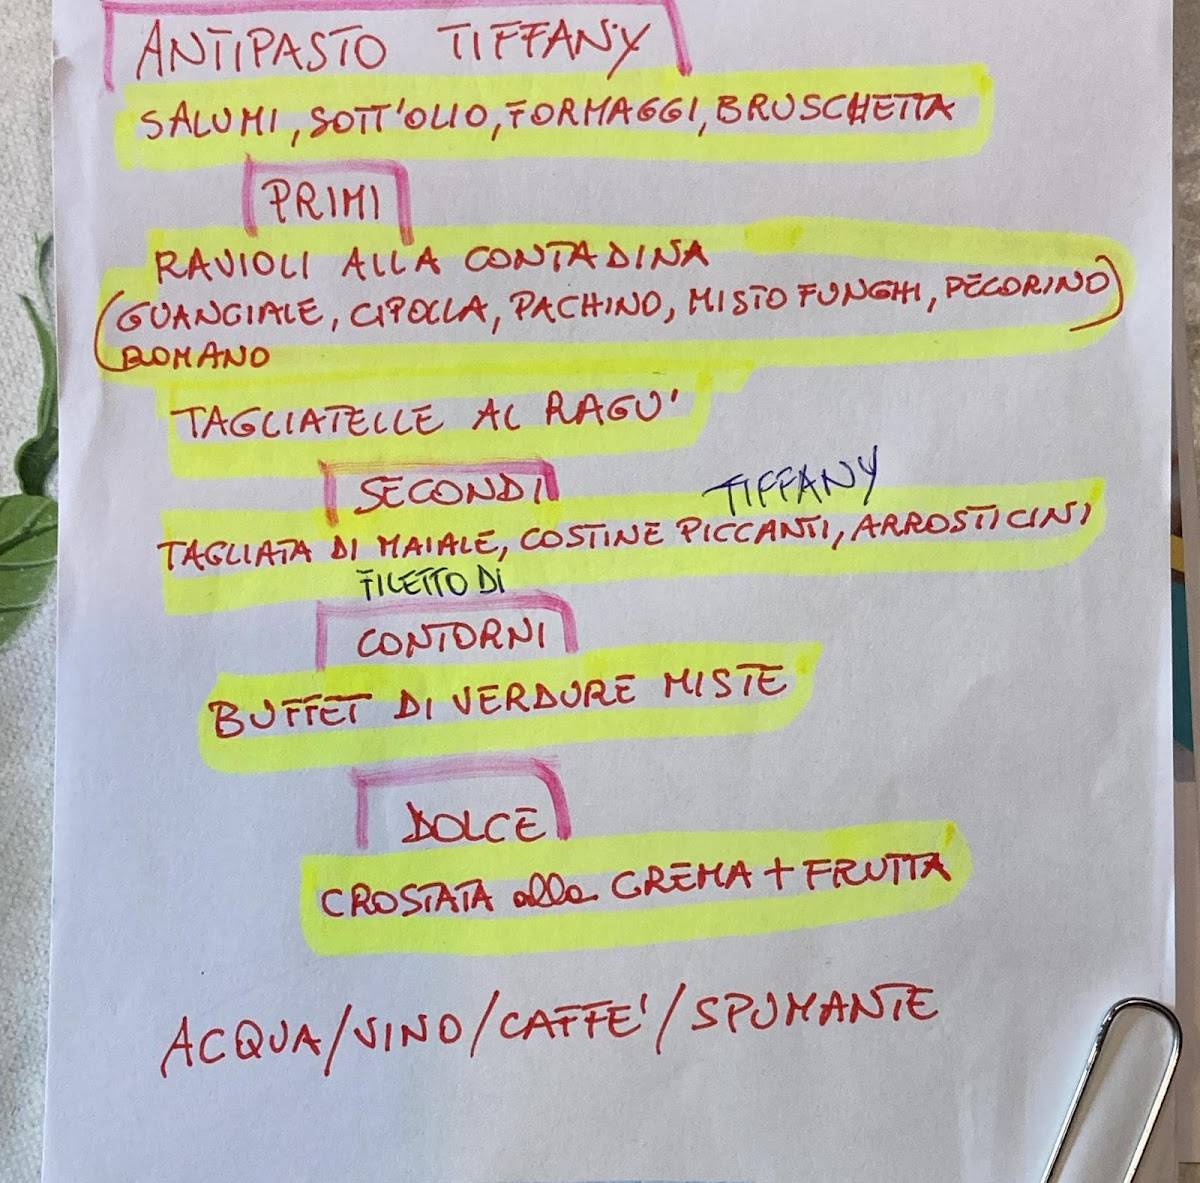 ANTIPASTO TIFFANY
SALUMI, SOTT'OLIO, FORMAGGI, BRUSCHETTA
PRIMI
RAVIOLI ALLA CONTADINA
(GUANCIALE, CIPOLLA, PACHINO, MISTO FUNGHI, PECORINO)
ROMANO
TAGLIATELLE AL RAGU'
SECONDI
TIFFANY
TAGLIATA DI MAIALE, COSTINE PICCANTI, ARROSTICINI
FILETTO DI
CONTORNI
BUFFET DI VERDURE MISTE
DOLCE
CROSTATA alla CREMA + FRUTTA
ACQUA/VINO/CAFFE'/SPUMANTE